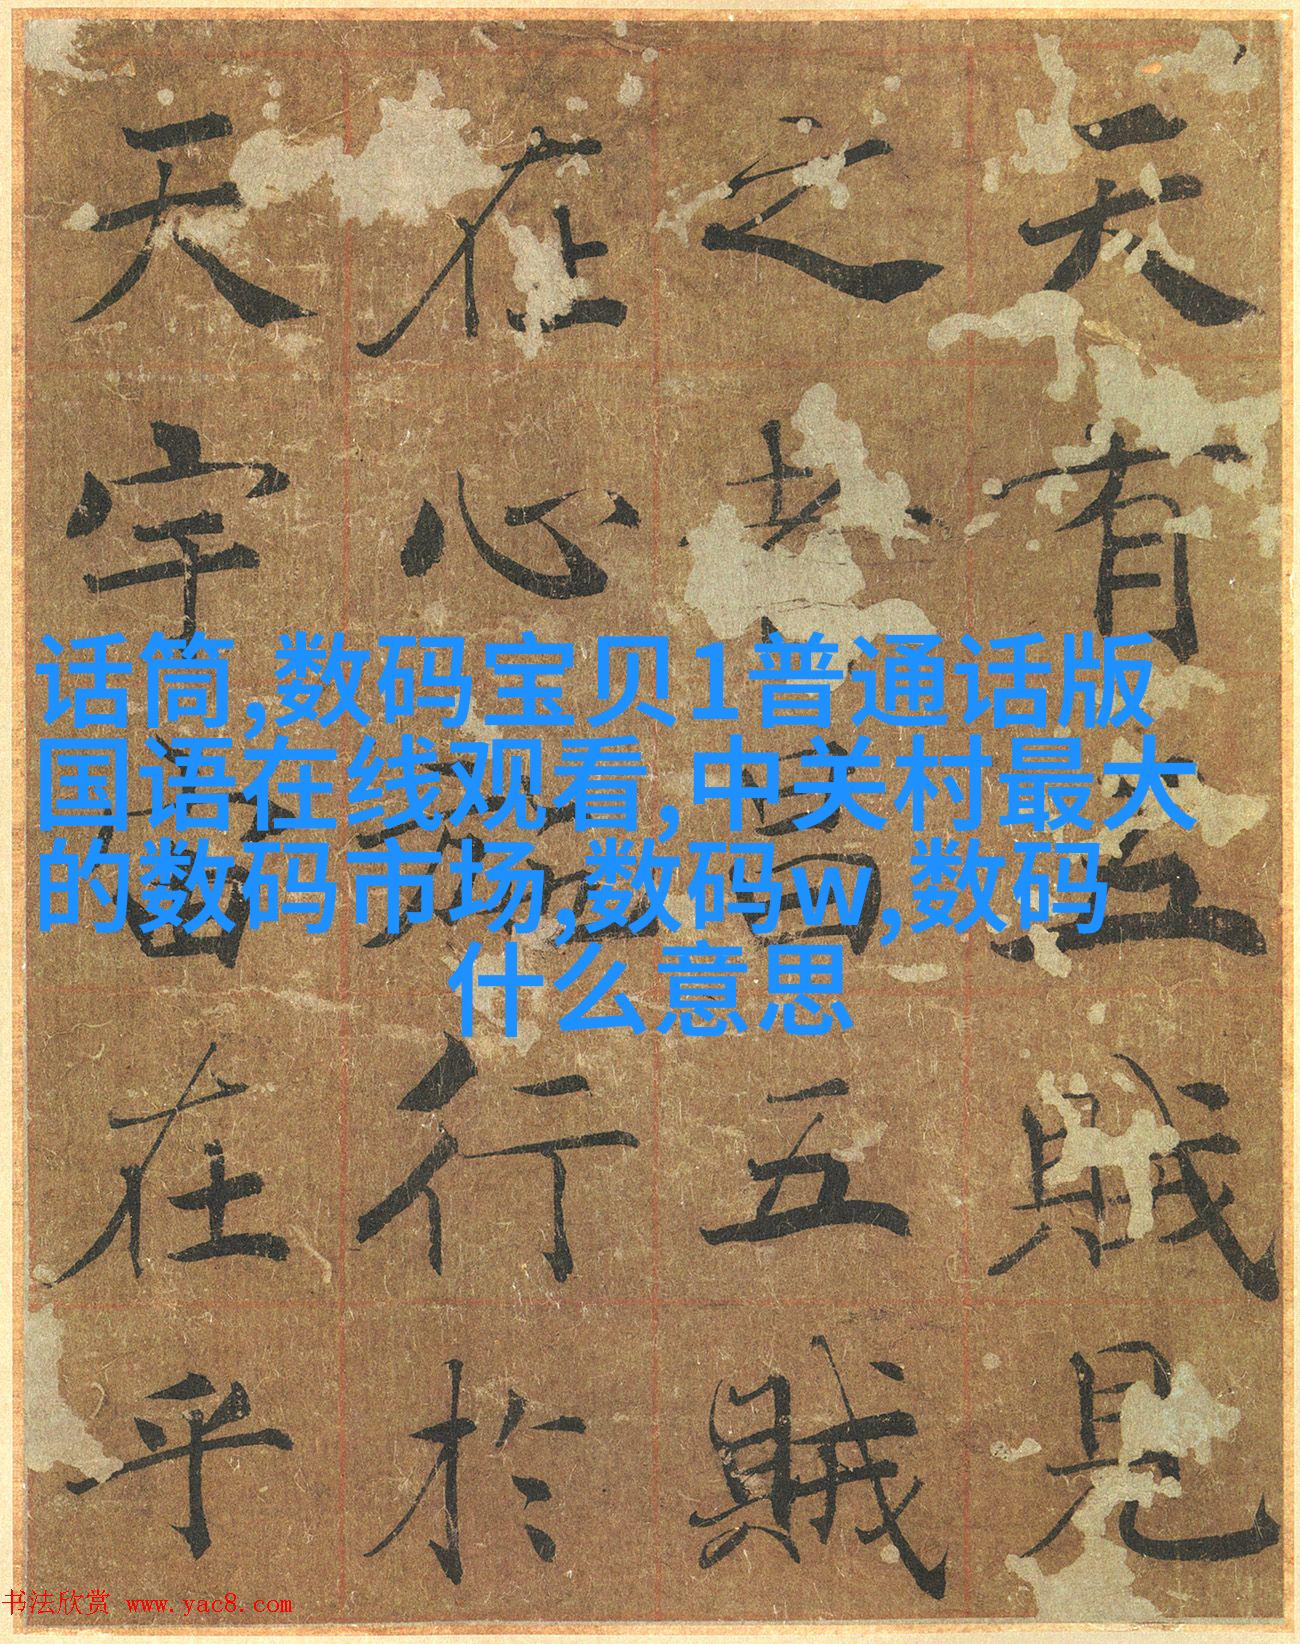 天有五賊見
之者昌五賊
在心施行於
天宇宙在乎
话筒,数码宝贝1普通话版
国语在线观看,中关村最大
的数码市场,数码w,数码
什么意思
书法欣赏 www.yac8.com